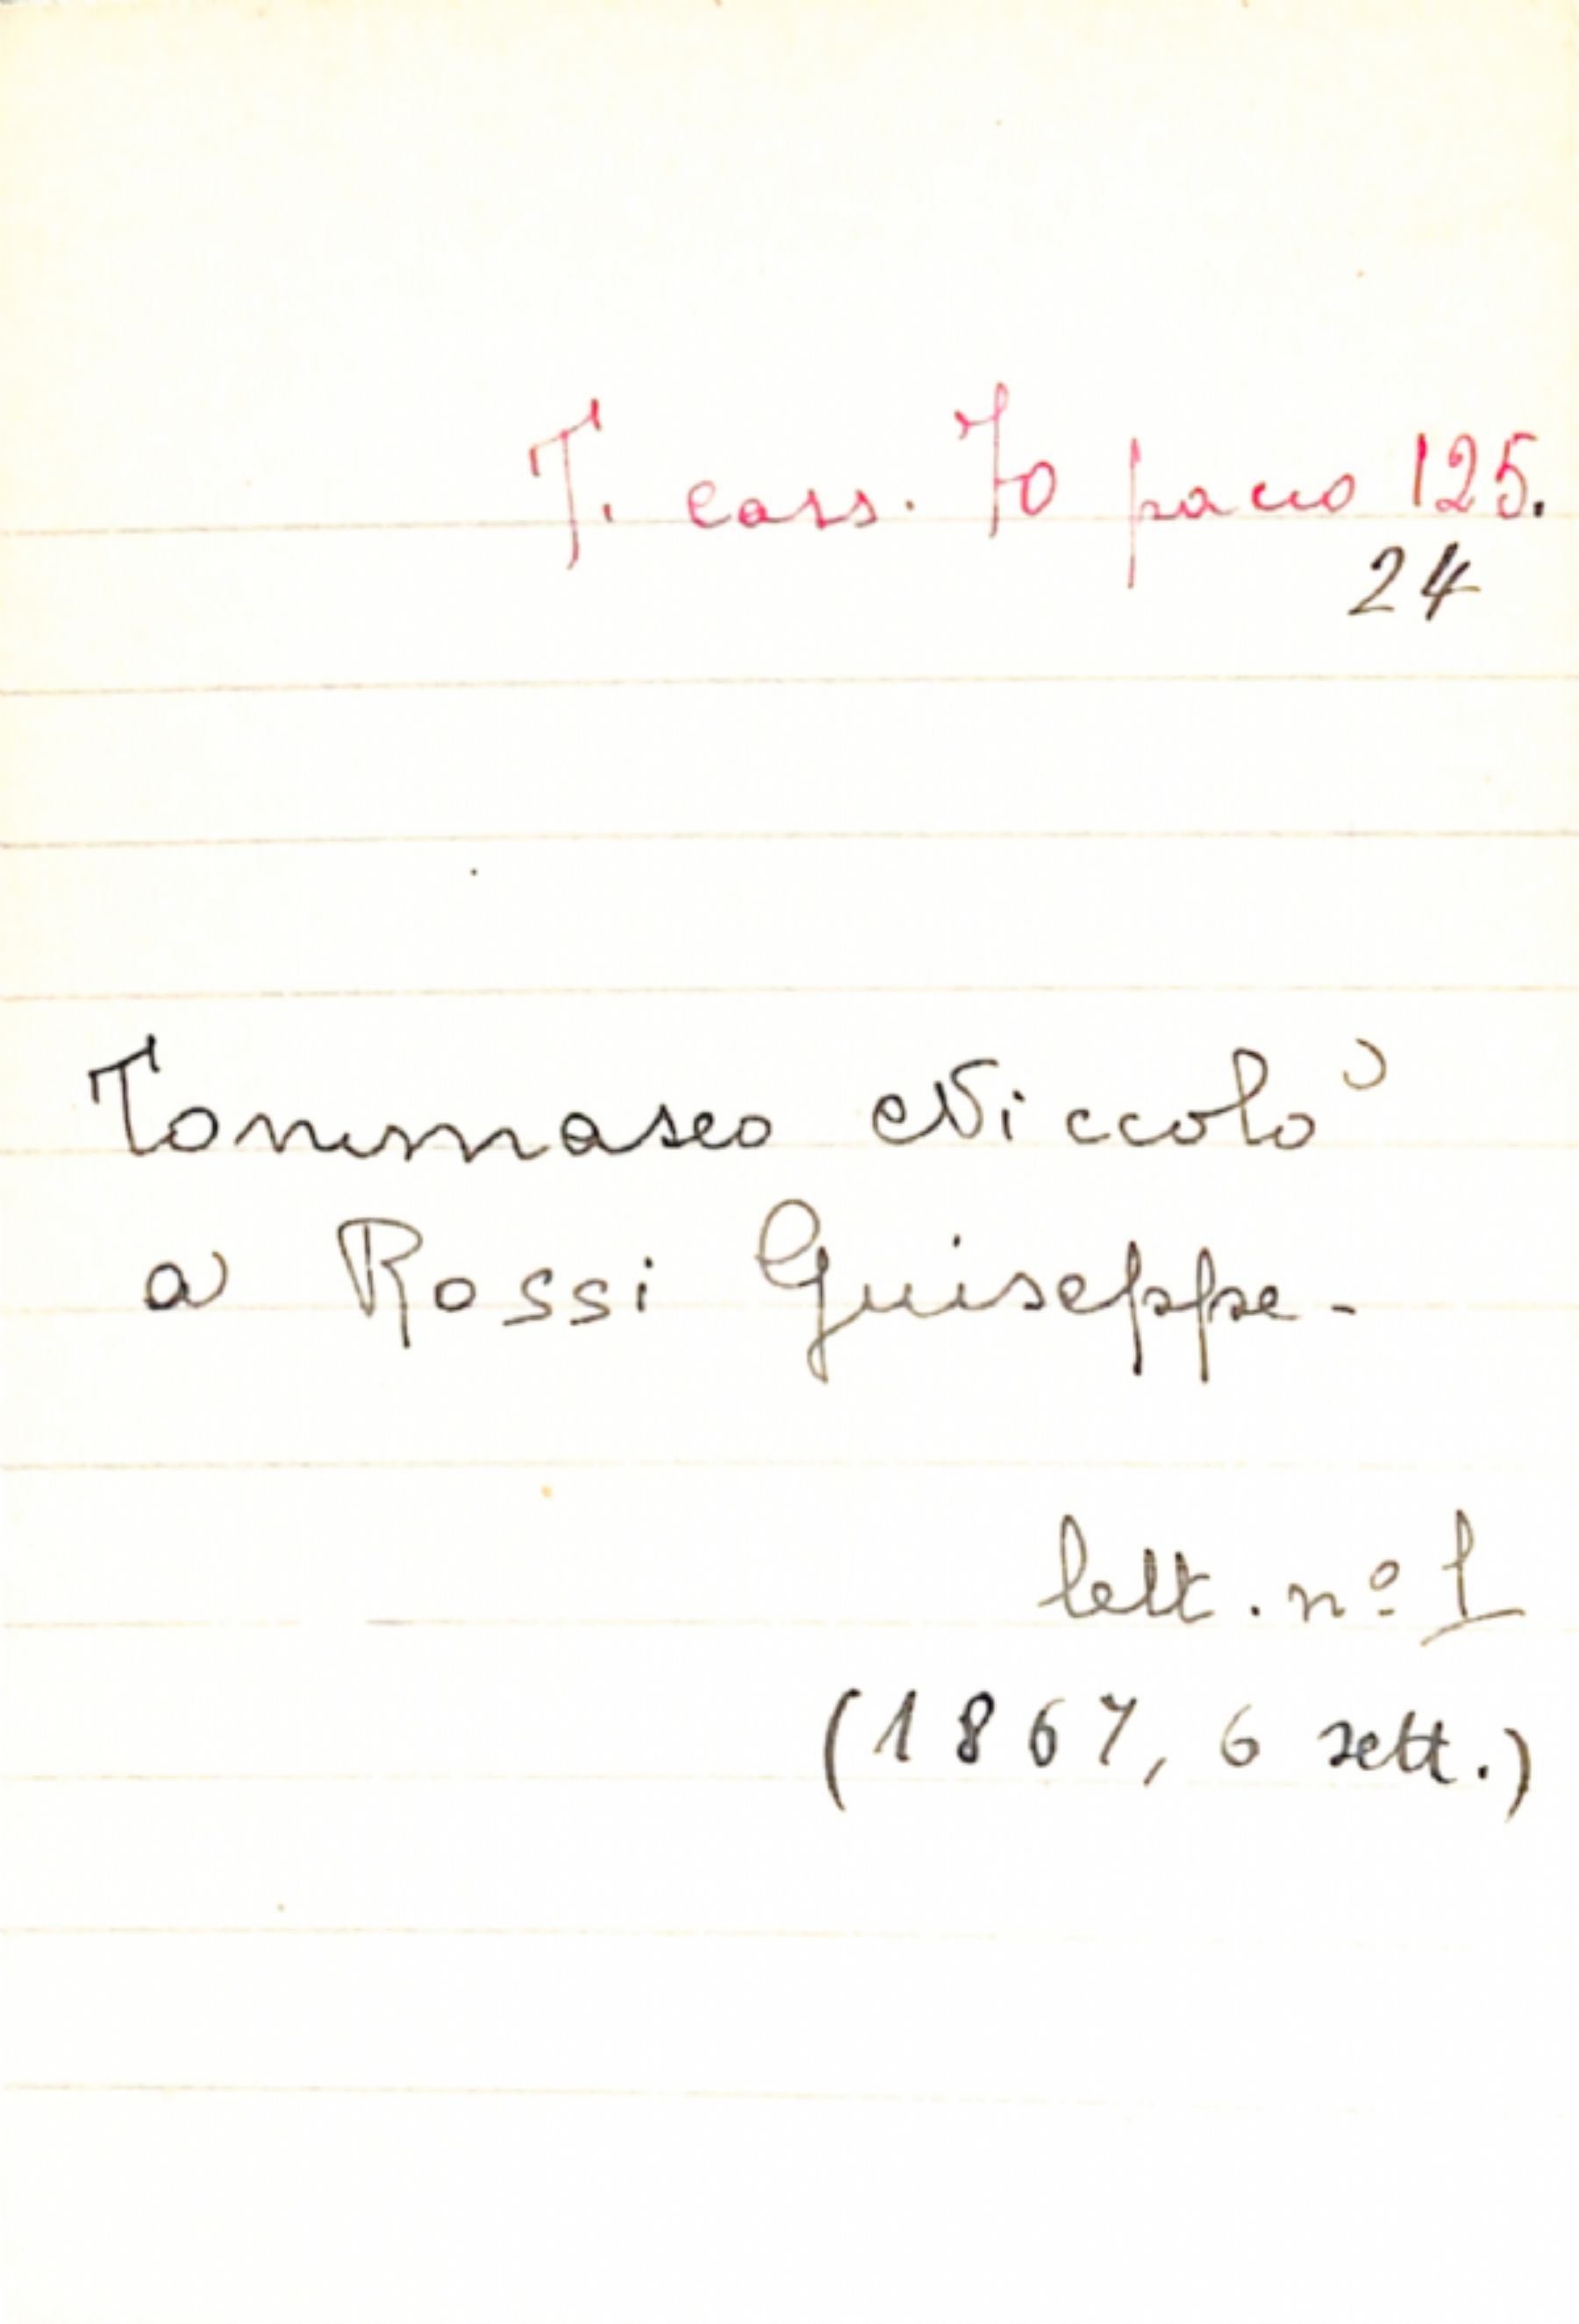 T. cass. 70 pacco 125.
24
Tommaseo Niccolò
a Rossi Guiseppe.
lett. nº 1
(1867, 6 sett.)